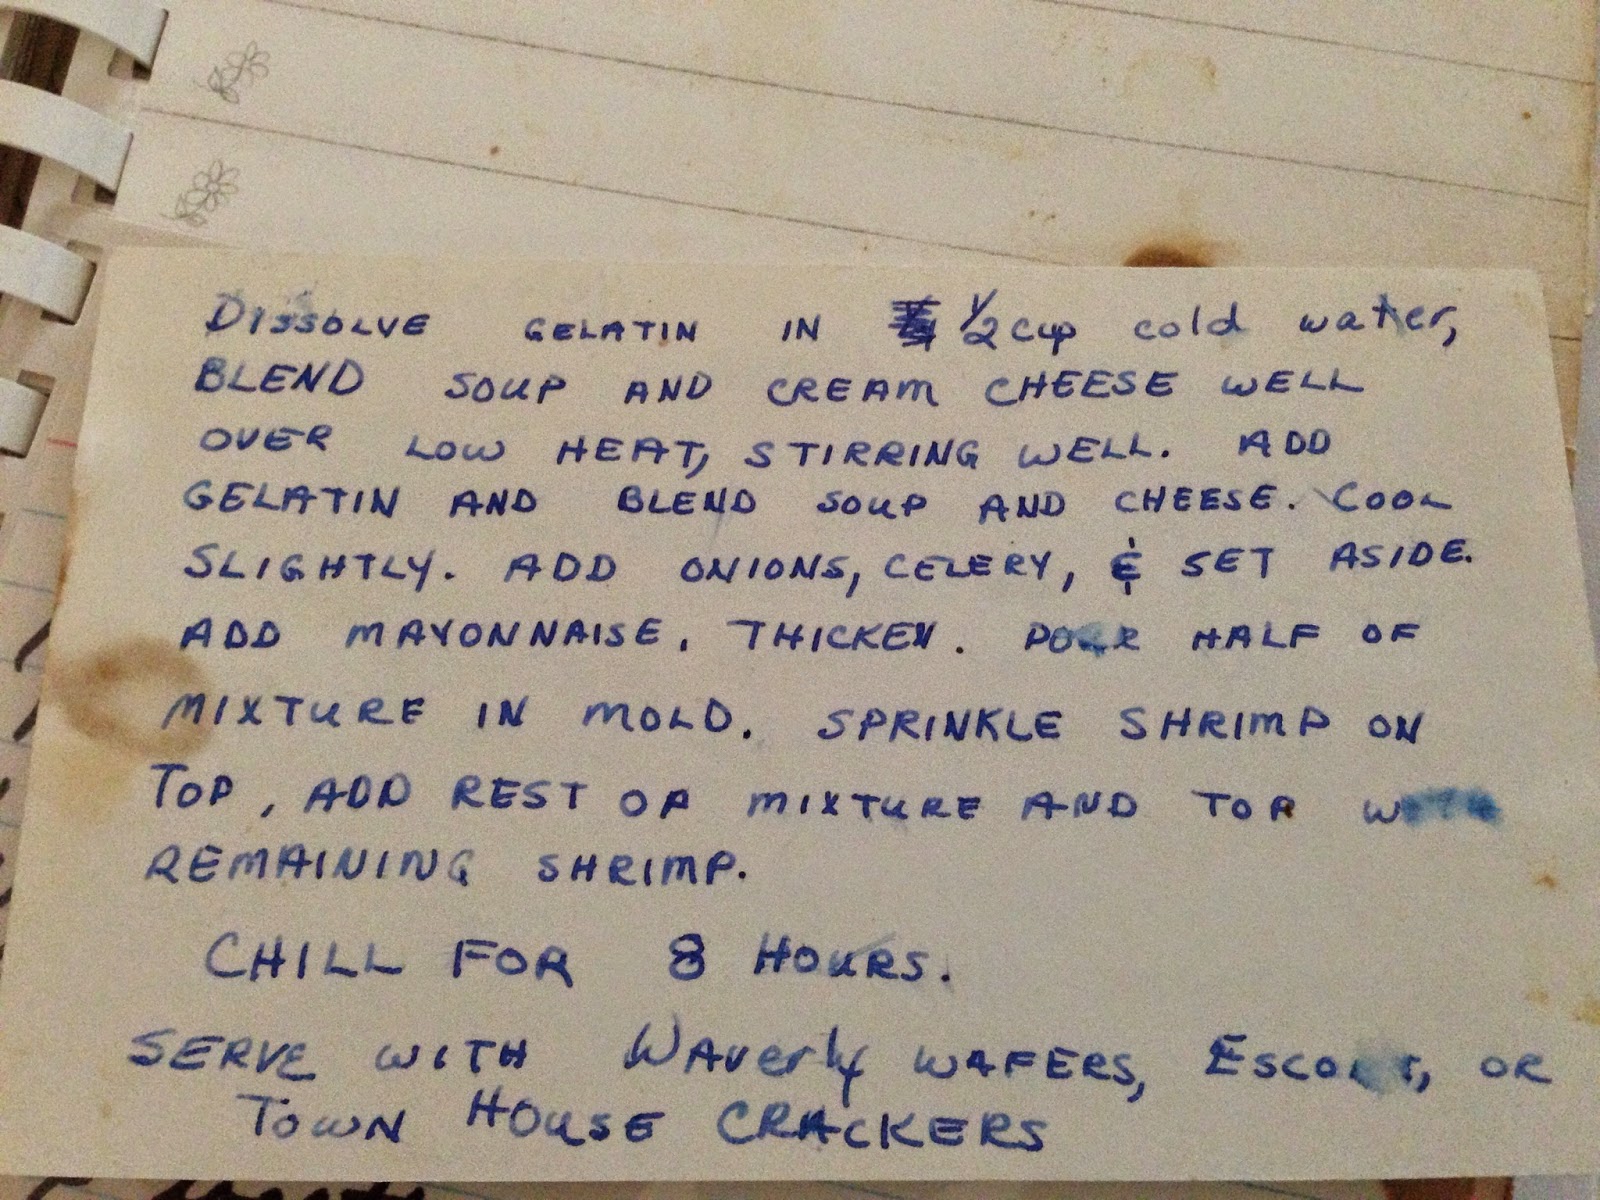 DISSOLVE GELATIN IN 1/2 cup cold water,
BLEND SOUP AND CREAM CHEESE WELL
OVER LOW HEAT, STIRRING WELL. ADD
GELATIN AND BLEND SOUP AND CHEESE. COOL
SLIGHTLY. ADD ONIONS, CELERY, & SET ASIDE.
ADD MAYONNAISE. THICKEN. POUR HALF OF
MIXTURE IN MOLD. SPRINKLE SHRIMP ON
TOP, ADD REST OF MIXTURE AND TOP WITH
REMAINING SHRIMP.
CHILL FOR 8 HOURS.
SERVE WITH Waverly WAFERS, ESCORT, OR
TOWN HOUSE CRACKERS